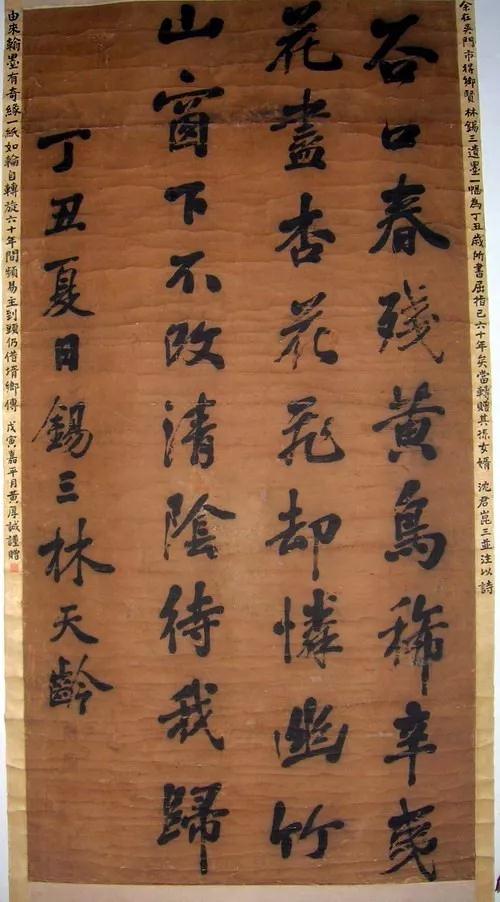 余在吳門市得鄉賢林錫三遺墨一幅為丁丑歲所書屈指已六十年矣當轉贈其孫女婿 沈君崑三並注以詩
谷口春殘黃鳥稀辛夷
花盡杏花飛却憐幽竹
山窗下不改清陰待我歸
丁丑夏日錫三林天齡
由來翰墨有奇緣一紙如輪自轉旋六十年間頻易主到頭仍借壻鄉傳 戊寅嘉平月黃厚誠謹贈